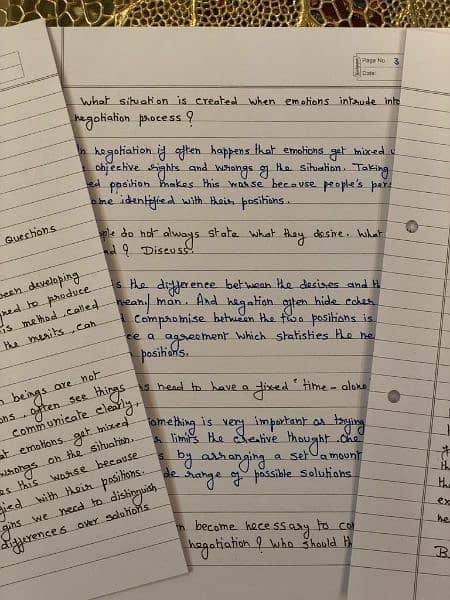 Page No. 3
Date:
What situation is created when emotions intrude into
negotiation process?
In negotiation if often happens that emotions get mixed
objective rights and wrongs of the situation. Taking
position makes this worse because people's
identified with their positions.
do not always state what they desire. What
? Discuss.
is the difference between the desires and
mean/ man. And negation often hide
compromise between the two positions is
a agreement which statisties the
positions.
need to have a fixed "time-
something is very important as trying
limits the creative thought. One
by arranging a set amount
range of possible solutions
become necessary to
negotiation? Who should
Questions
been developing
to produce
method, called
the merits, can
beings are not
often see things
communicate clearly,
emotions get mixed
wrongs on the situation.
this worse because
with their positions.
we need to distinguish
differences over solutions
B